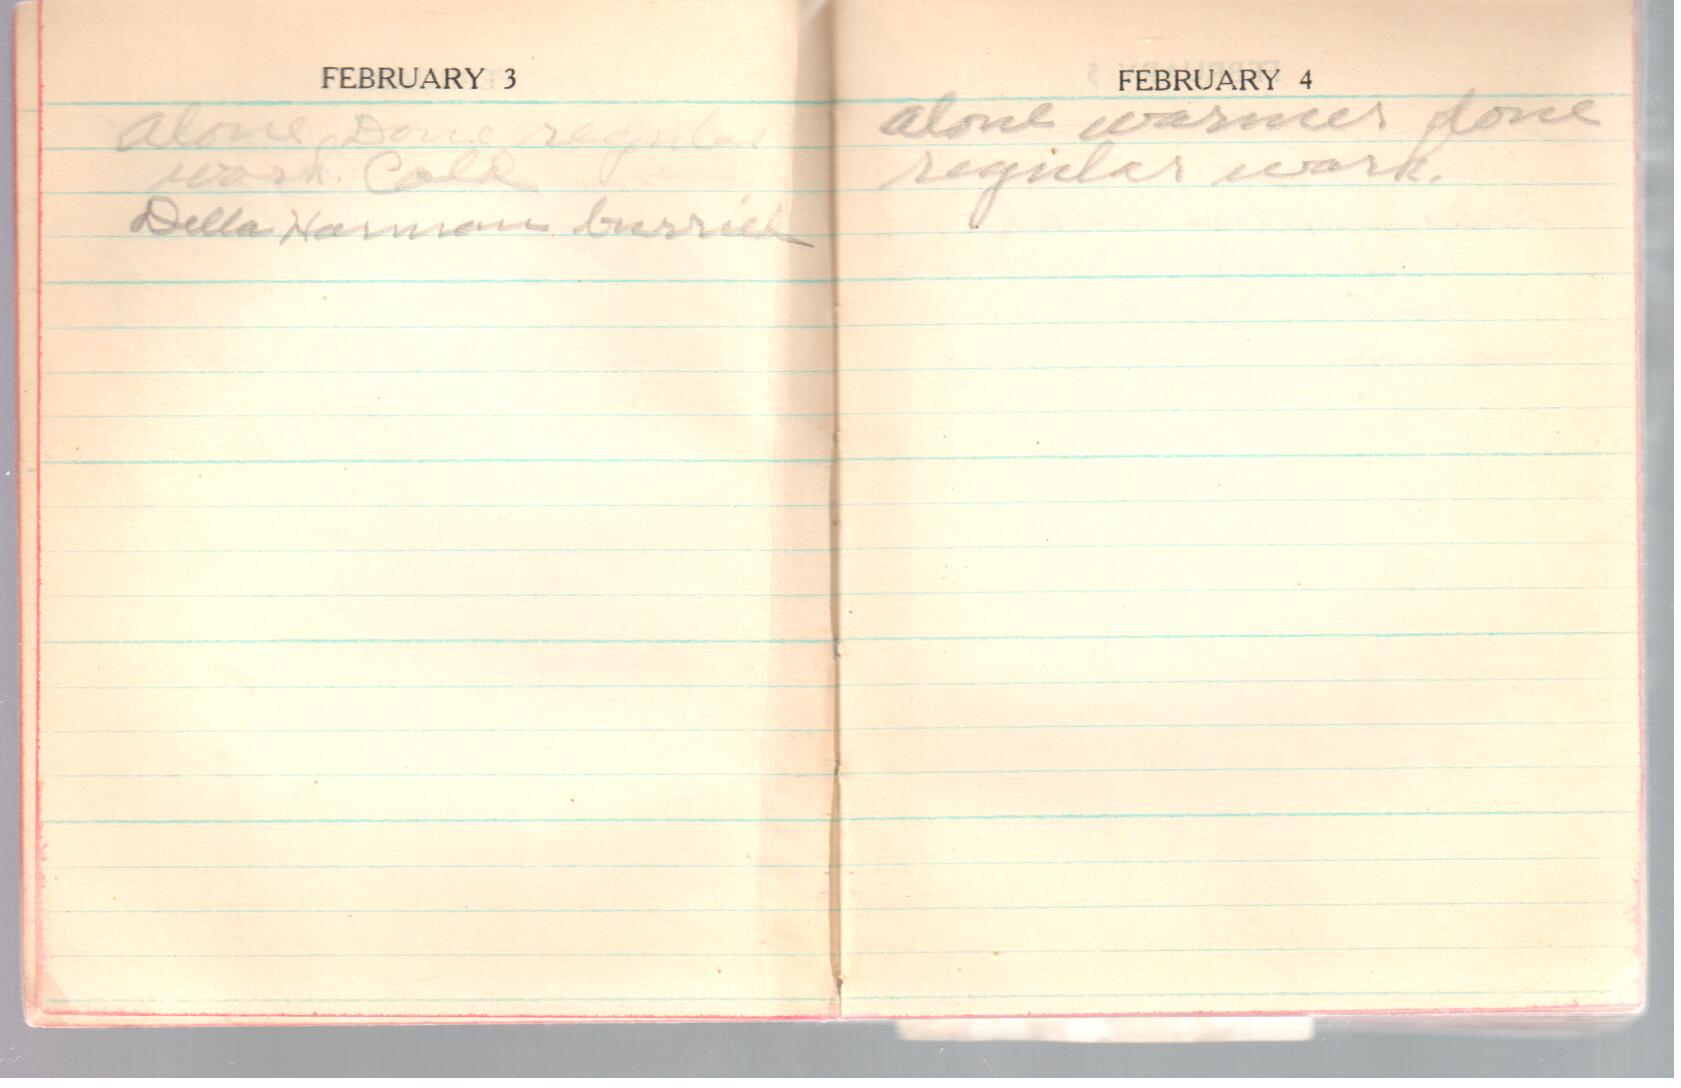 FEBRUARY 3
alone Done regular
work. Cold
Della Harman burried
FEBRUARY 4
alone warmer done
regular work.